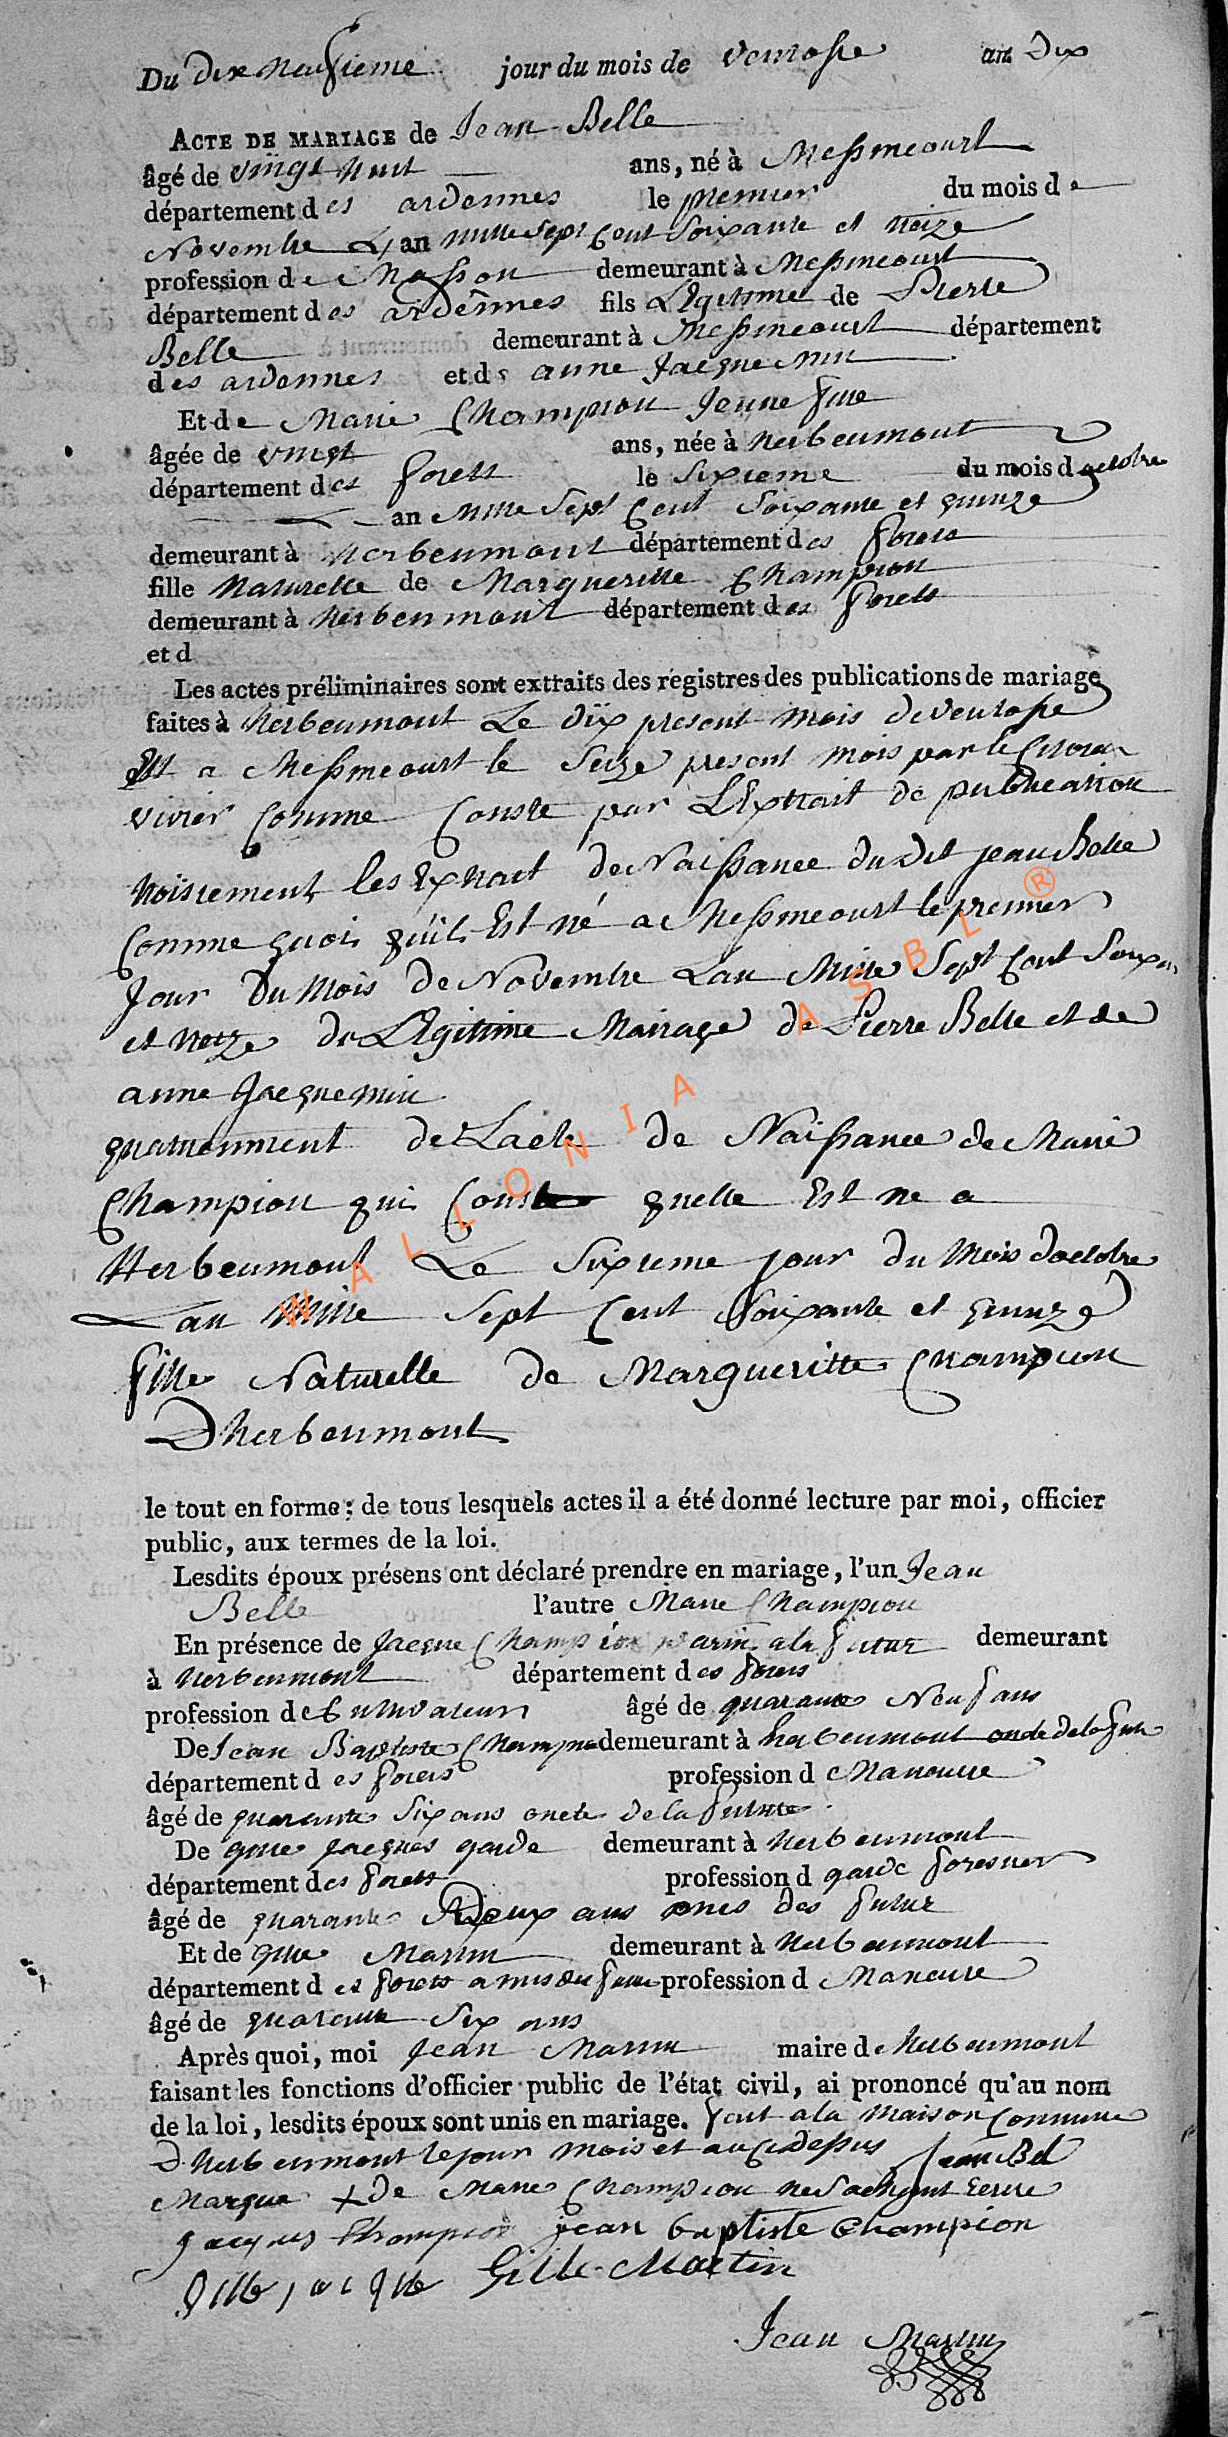 Du dix Neufsieme jour du mois de ventosse an Dix
ACTE DE MARIAGE de Jean Belle
âgé de vingt huit ans, né à Messincourt
département des ardennes le premier du mois de
Novembre L'an mille sept Cent soixante et treize
profession de Masson demeurant à Messincourt
département des ardennes fils Légitime de Pierre
Belle demeurant à Messincourt département
des ardennes et de anne Jacquemin
Et de Marie Champion Jeune fille
âgée de vingt ans, née à herbeumont
département des forets le sixieme du mois doctobre
an Mille Sept Cent soixante et quinze
demeurant à herbeumont département des forets
fille Naturelle de Margueritte Champion
demeurant à herbeumont département des forets
et d
Les actes préliminaires sont extraits des registres des publications de mariage
faites à herbeumont Le dix present mois de ventosse
Est a Messincourt le seize present mois par le Citoien
vivier Comme Conste par L'Extrait de publication
troisiement les Extrait de Naissance du dit jean Belle
Comme quoi qu'il Est né a Messincourt le premier
Jour du Mois de Novembre Lan Mille Sept Cent Soixan
et treize de Légitime Mariage de Pierre Belle et de
anne Jacquemin
quatriemment de Lacte de Naissance de Marie
Champion qui Conste quelle Est ne a
Herbeumont Le Sixieme jour du Mois doctobre
Lan Mille Sept Cent Soixante et quinze
fille Naturelle de Margueritte Champion
Dherbeumont
le tout en forme : de tous lesquels actes il a été donné lecture par moi, officier
public, aux termes de la loi.
Lesdits époux présens ont déclaré prendre en mariage, l'un Jean
Belle l'autre Marie Champion
En présence de Jacque Champion a la futur demeurant
à herbeumont département des forets
profession de Cultivateur âgé de quarante Neuf ans
De Jean Baptiste Champion demeurant à herbeumont oncle de la futur
département des forets profession d Manouvre
âgé de quarante Six ans oncle de la future
De gille jacques garde demeurant à herbeumont
département des forets profession d garde forestier
âgé de quarante Deux ans amis des futur
Et de gille Martin demeurant à herbeumont
département des forets amis du futur profession d Maneuvre
âgé de quarante Six ans
Après quoi, moi Jean Martin maire de herbeumont
faisant les fonctions d'officier public de l'état civil, ai prononcé qu'au nom
de la loi, lesdits époux sont unis en mariage. fait a la Maison Commune
D'herbeumont le jour mois et an Cy dessus Jean Bel
Marque + de Marie Champion ne sachant Ecrire
Jacques Champion jean baptiste Champion
Gille Jacque Gille Martin
Jean Martin
WALLONIA ASBL ®